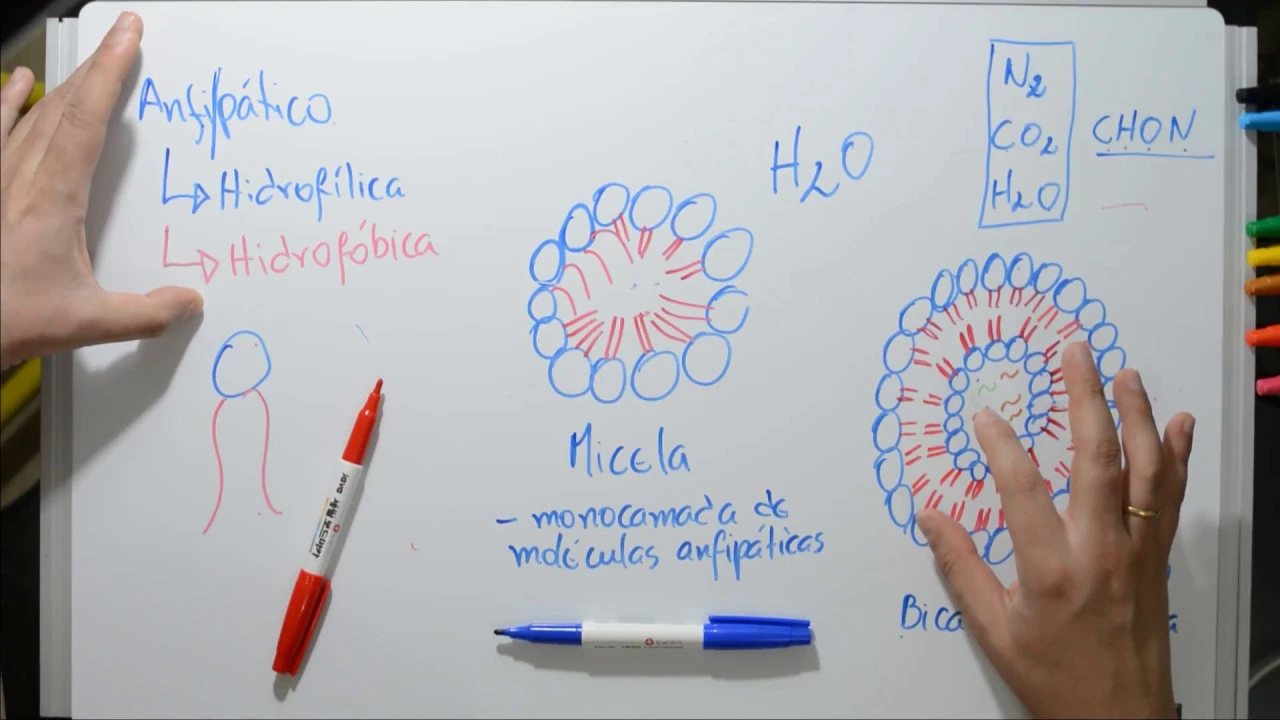 Anfipático
Hidrofílica
Hidrofóbica
H₂O
N₂
CO₂
H₂O
CHON
Micela
- monocamada de
moléculas anfipáticas